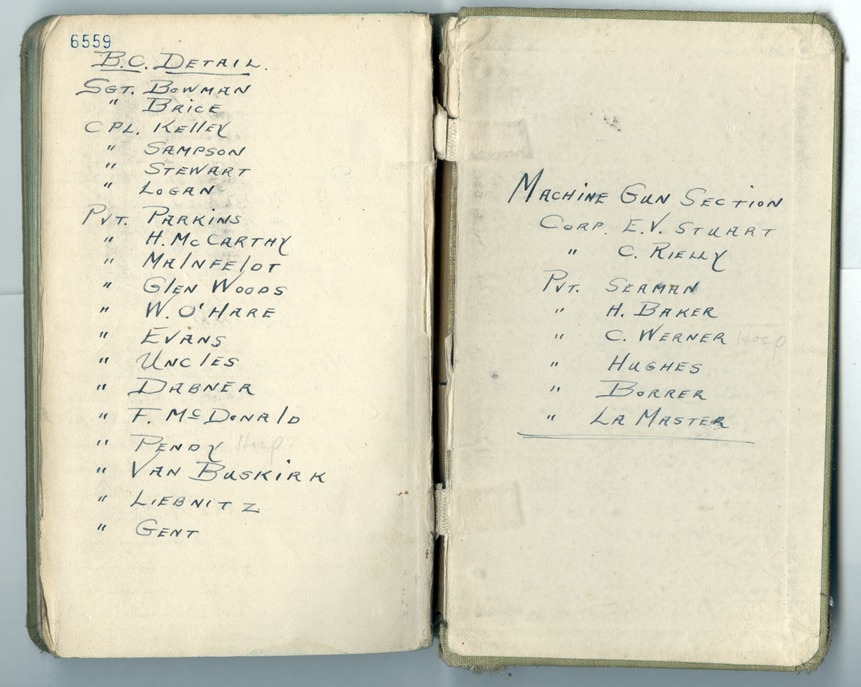 6559
B.C. DETAIL.
SGT. BOWMAN
" BRICE
CPL. KELLEY
" SAMPSON
" STEWART
" LOGAN
PVT. PARKINS
" H. McCARTHY
" MAINFELOT
" GLEN WOODS
" W. O'HARE
" EVANS
" UNCLES
" DABNER
" F. McDONALD
" PENDY Hosp
" VAN BUSKIRK
" LIEBNITZ
" GENT
MACHINE GUN SECTION
CORP. E.V. STUART
" C. RIELLY
PVT. SEAMAN
" H. BAKER
" C. WERNER Hosp
" HUGHES
" BORRER
" LA MASTER